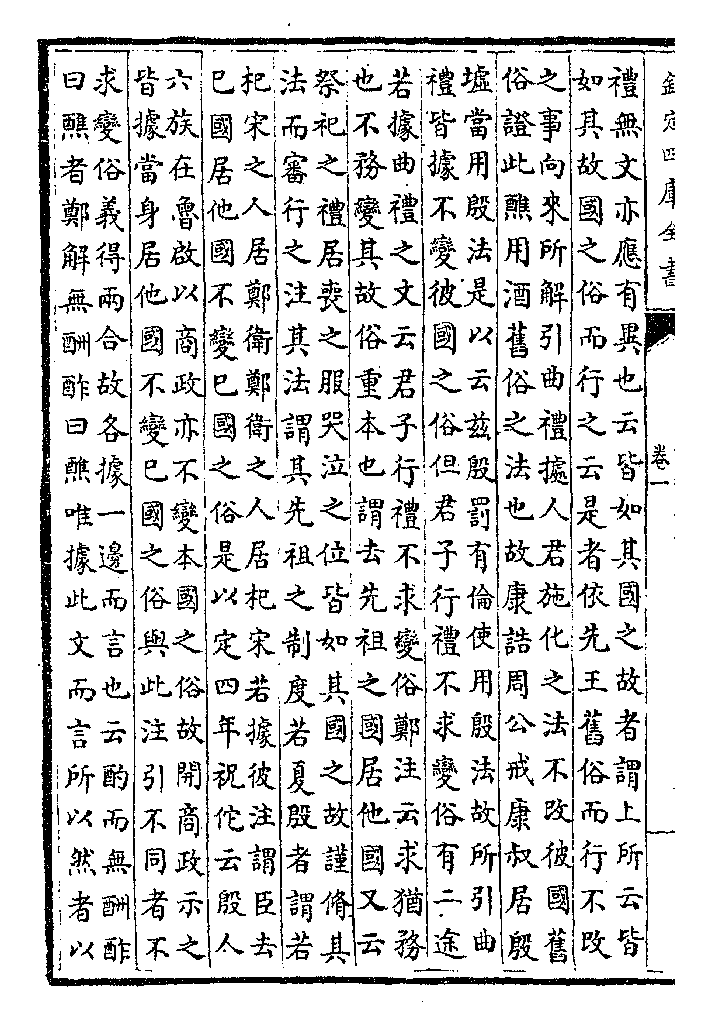 欽定四庫全書
卷一
禮無文亦應有異也云皆如其國之故者謂上所云皆
如其故國之俗而行之云是者依先王舊俗而行不改
之事向來所解引曲禮據人君施化之法不改彼國舊
俗證此醮用酒舊俗之法也故康誥周公戒康叔居殷
墟當用殷法是以云兹殷罰有倫使用殷法故所引曲
禮皆據不變彼國之俗但君子行禮不求變俗有二途
若據曲禮之文云君子行禮不求變俗鄭注云求猶務
也不務變其故俗重本也謂去先祖之國居他國又云
祭祀之禮居喪之服哭泣之位皆如其國之故謹脩其
法而審行之注其法謂其先祖之制度若夏殷者謂若
杞宋之人居鄭衛鄭衛之人居杞宋若據彼注謂臣去
巳國居他國不變巳國之俗是以定四年祝佗云殷人
六族在魯啟以商政亦不變本國之俗故開商政示之
皆據當身居他國不變巳國之俗與此注引不同者不
求變俗義得兩合故各據一邊而言也云酌而無酬酢
曰醮者鄭解無酬酢曰醮唯據此文而言所以然者以